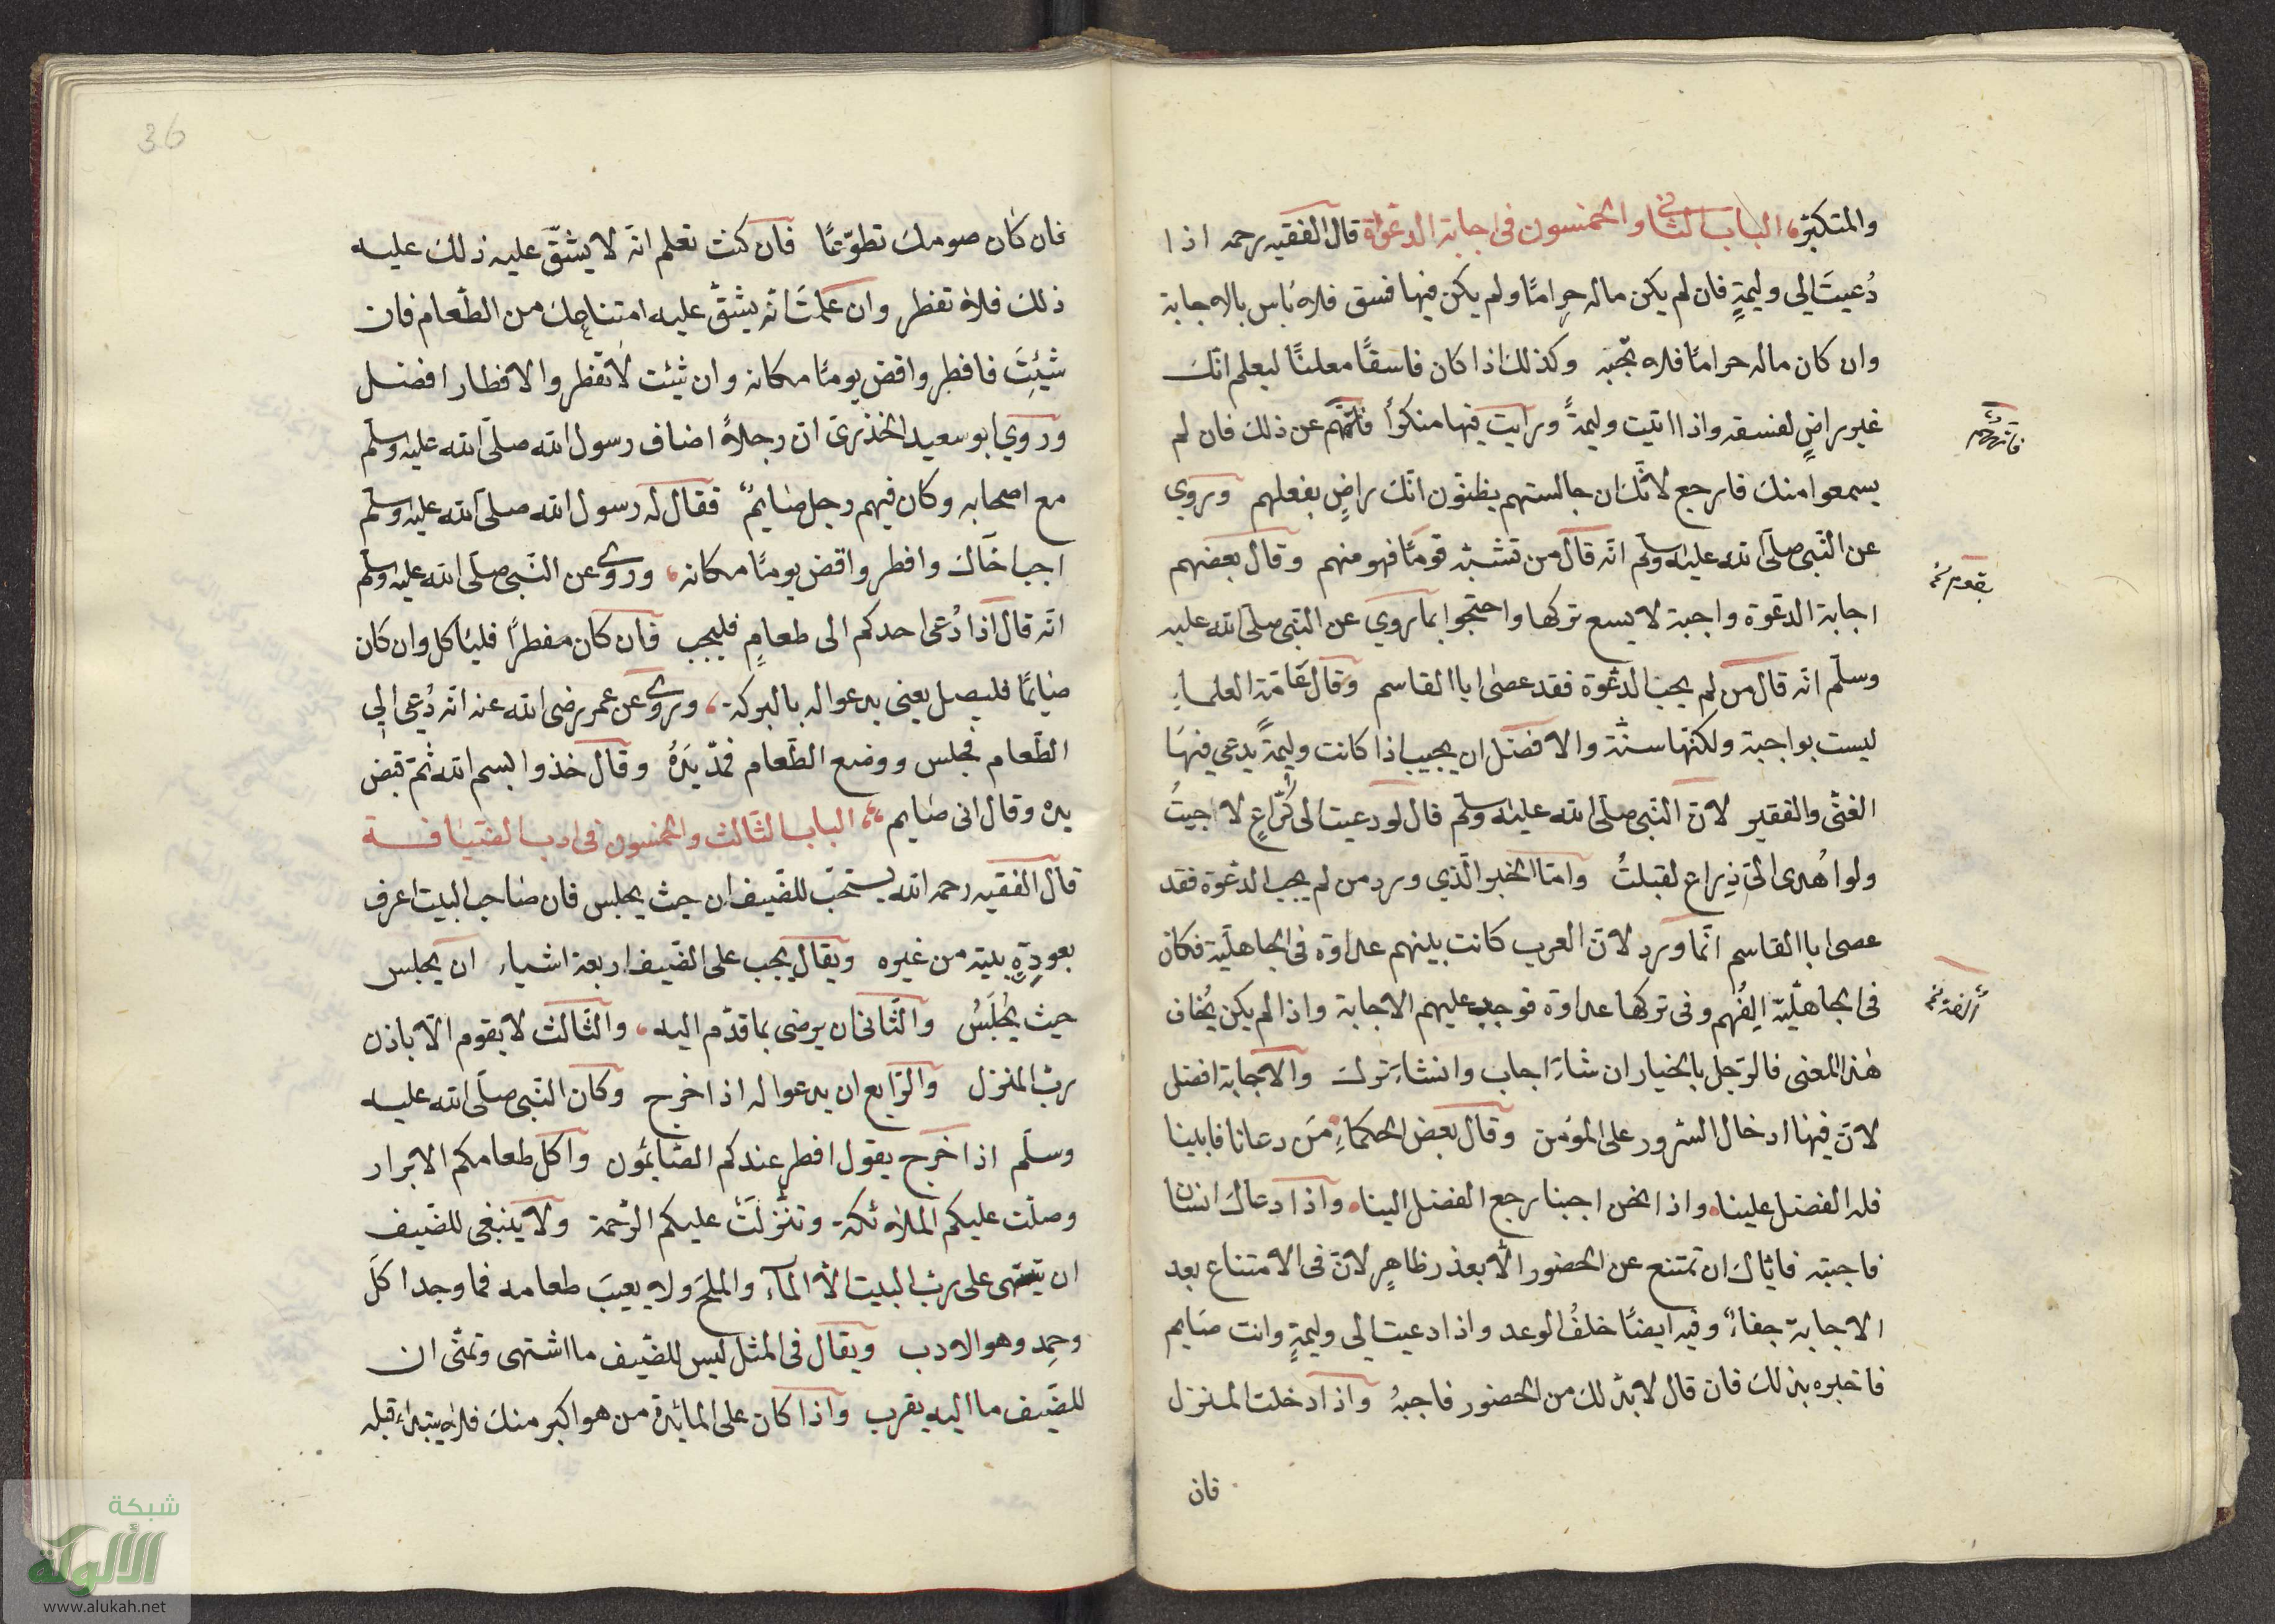 والمتكبر، الباب الثاني والخمسون في اجابة الدعوة قال الفقيه رحمه اذا
دُعيتَ الي وليمةٍ فان لم يكن ماله حرامًا ولم يكن فيها فسق فلا بأس بالاجابة
وان كان ماله حرامًا فلا تجبه وكذلك اذا كان فاسقًا معلنًا ليعلم انّك
غير راضٍ لفسقه واذا اتيت وليمةً ورايت فيها منكرًا فانههم عن ذلك فان لم
يسمعوا منك فارجع لانّك ان جالستهم يظنّون انّك راضٍ بفعلهم وروي
عن النّبي صلّى الله عليه وسلّم انّه قال من تشبّه قومًا فهو منهم وقال بعضهم
بقوم
اجابة الدعوة واجبة لا يسع تركها واحتجّوا بما روي عن النّبي صلّى الله عليه
وسلّم انّه قال من لم يجب الدعوة فقد عصى ابا القاسم وقال عامّة العلماء
ليست بواجبة ولكنّها سنّة والافضل ان يجيب اذا كانت وليمةً يدعي فيها
الغنّى والفقير لانّ النّبي صلّى الله عليه وسلّم قال لو دعيت الى كُراعٍ لاجبتُ
ولو اُهدى الىّ ذِراع لقبلتُ وامّا الخبر الّذي ورد من لم يجب الدعوة فقد
عصى ابا القاسم انّما ورد لانّ العرب كانت بينهم عداوة في الجاهليّة فكان
في الجاهليّة اِلفُهم وفى تركها عداوة فوجب عليهم الاجابة واذا لم يكن يُخاف
هذا المعنى فالرّجل بالخيار ان شاء اجاب وانشاء ترك والاجابة افضل
لانّ فيها ادخال السّرور على المؤمن وقال بعض الحكماءِ مَن دعانا فابينا
فله الفضل علينا، واذا نحن اجبنا رجع الفضل الينا، واذا دعاك انسان
فاجبته فايّاك ان تمتنع عن الحضور الّا بعذر ظاهرٍ لانّ فى الامتناع بعد
الاجابة جفاءً وفيه ايضًا خلفُ الوعد واذا دعيت الي وليمةٍ وانت صايم
فاخبره بذلك فان قال لا بدّ لك من الحضور فاجبهُ واذا دخلت المنزل
فان
36
فان كان صومك تطوّعًا فان كنت تعلم انّه لا يشقّ عليه ذلك عليه
ذلك فلا تفطر وان علمتَ انّه يشقّ عليه امتناعك من الطّعام فان
شئِتَ فافطر واقض يومًا مكانه وان شئت لا تفطر والافطار افضل
وروي ابو سعيد الخذرىّ ان رجلاً اضاف رسول الله صلّى الله عليه وسلّم
مع اصحابه وكان فيهم رجل صايمٌ فقال له رسول الله صلّى الله عليه وسلّم
اجب اخاك وافطر واقض يومًا مكانه، وروى عن النّبي صلّى الله عليه وسلّم
انّه قال اذا دُعى احدكم الى طعامٍ فليجب فان كان مفطرًا فليأكل وان كان
صايمًا فليصل يعنى يدعو له بالبركة، وروى عن عمر رضى الله عنه انّه دُعى الي
الطّعام فجلس ووضع الطّعام فمدّ يدهُ وقال خذوا بسم الله ثمّ قبض
يده وقال انى صايم، الباب الثّالث والخمسون فى ادب الضّيافة
قال الفقيه رحمه الله يستحبّ للضّيف ان حيث يجلس فان صاحب البيت اعرف
بعورةٍ بيته من غيره ويقال يجب على الضّيف اربعة اشياء ان يجلس
حيث يُجْلَسُ والثّاني ان يرضى بما قدّم اليه، والثّالث لا يقوم الّا باذن
ربّ المنزل والرّابع ان يدعو له اذا خرج وكان النّبي صلّى الله عليه
وسلّم اذا خرج يقول افطر عندكم الصّائمون واكل طعامكم الابرار
وصلّت عليكم الملائكة وتنزّلَتْ عليكم الرّحمة ولا ينبغى للضّيف
ان يتشهى على ربّ البيت الّا المآء والملح ولا يعيبَ طعامه فما وجد اكَل
وحمِد وهو الادب ويقال فى المثل ليس للضّيف ما اشتهى وتمنّى ان
للضّيف ما اليه يقرب واذا كان على المايدة من هو اكبر منك فلا تبتدا، قبله
شبكة
الألوكة
www.alukah.net